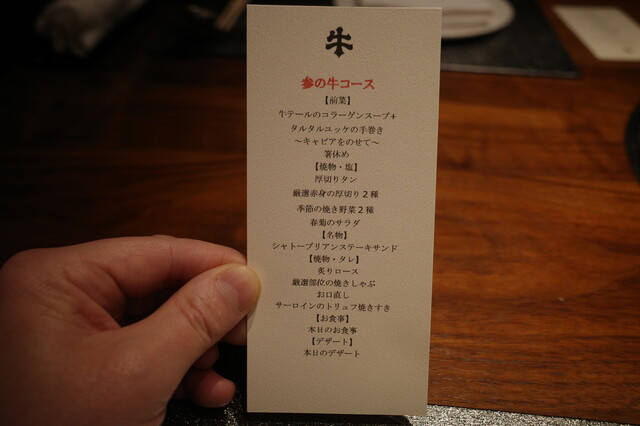 牛
参の牛コース
【前菜】
牛テールのコラーゲンスープ+
タルタルユッケの手巻き
〜キャビアをのせて〜
箸休め
【焼物・塩】
厚切りタン
厳選赤身の厚切り2種
季節の焼き野菜2種
春菊のサラダ
【名物】
シャトーブリアンステーキサンド
【焼物・タレ】
炙りロース
厳選部位の焼きしゃぶ
お口直し
サーロインのトリュフ焼きすき
【お食事】
本日のお食事
【デザート】
本日のデザート